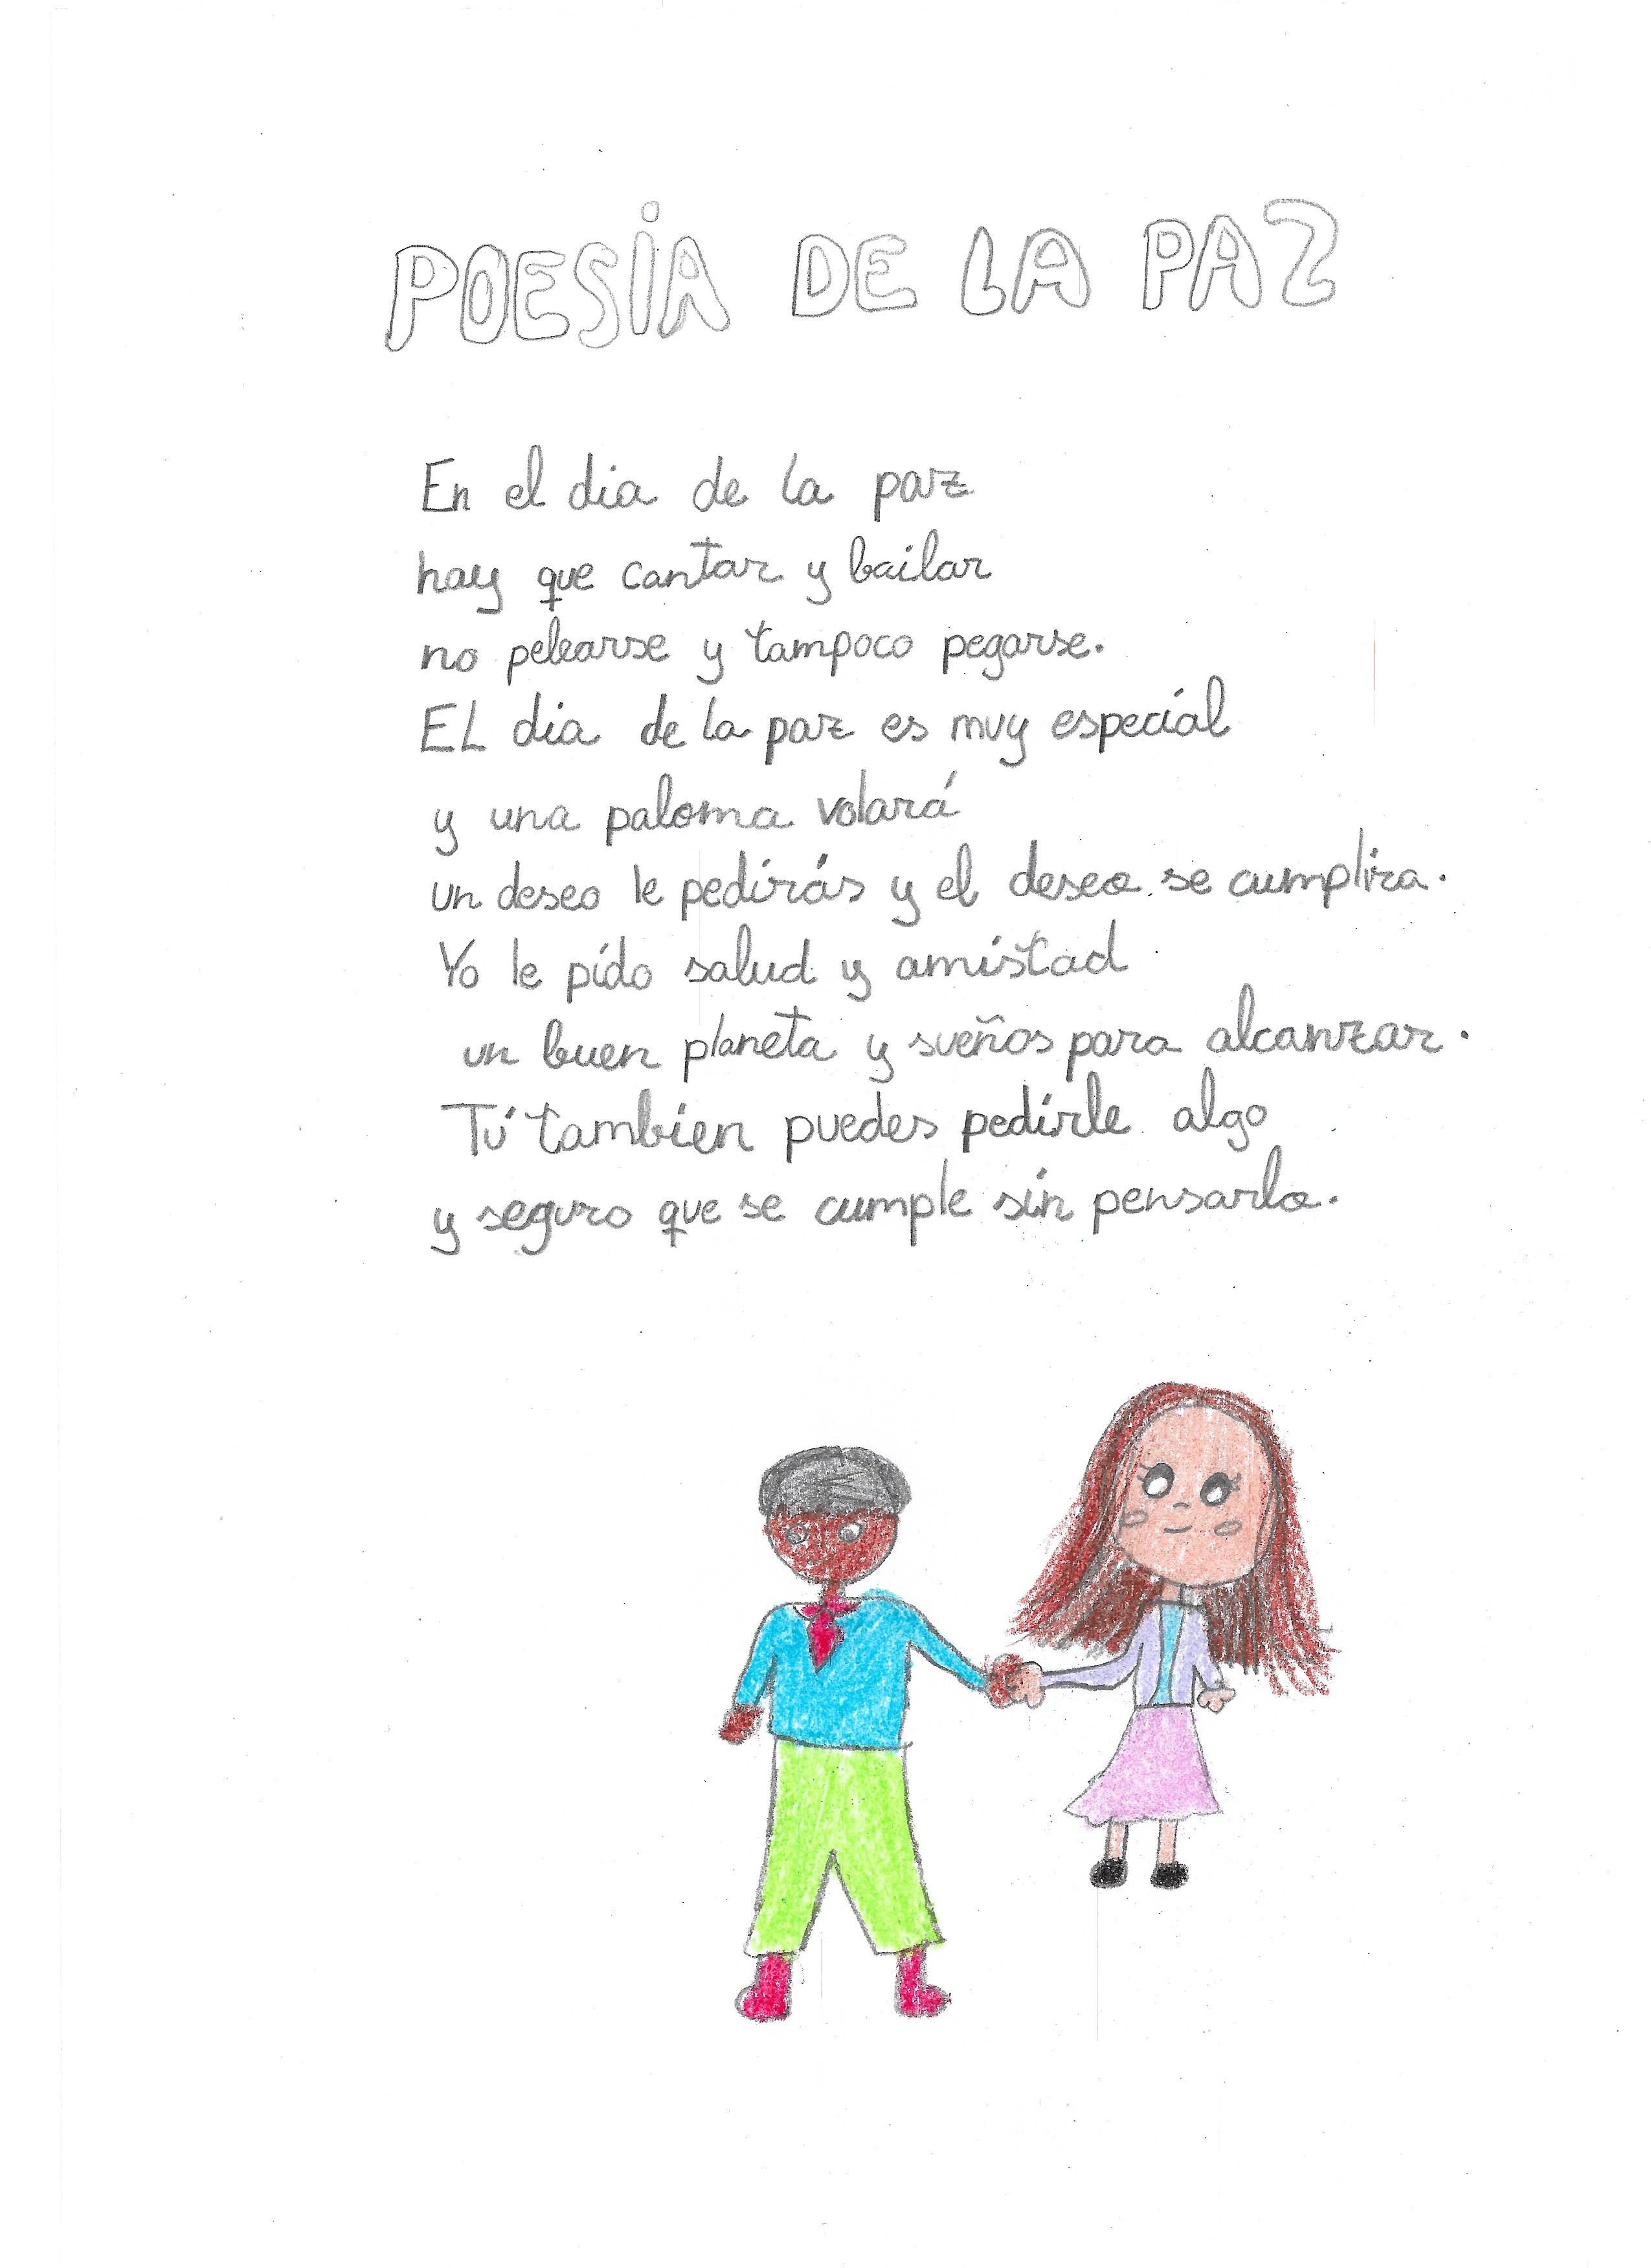 POESÍA DE LA PAZ
En el dia de la paz
hay que cantar y bailar
no pelearse y tampoco pegarse.
EL dia de la paz es muy especial
y una paloma volará
un deseo le pedirás y el deseo se cumplira.
Yo le pido salud y amistad
un buen planeta y sueños para alcanzar.
Tú tambien puedes pedirle algo
y seguro que se cumple sin pensarlo.